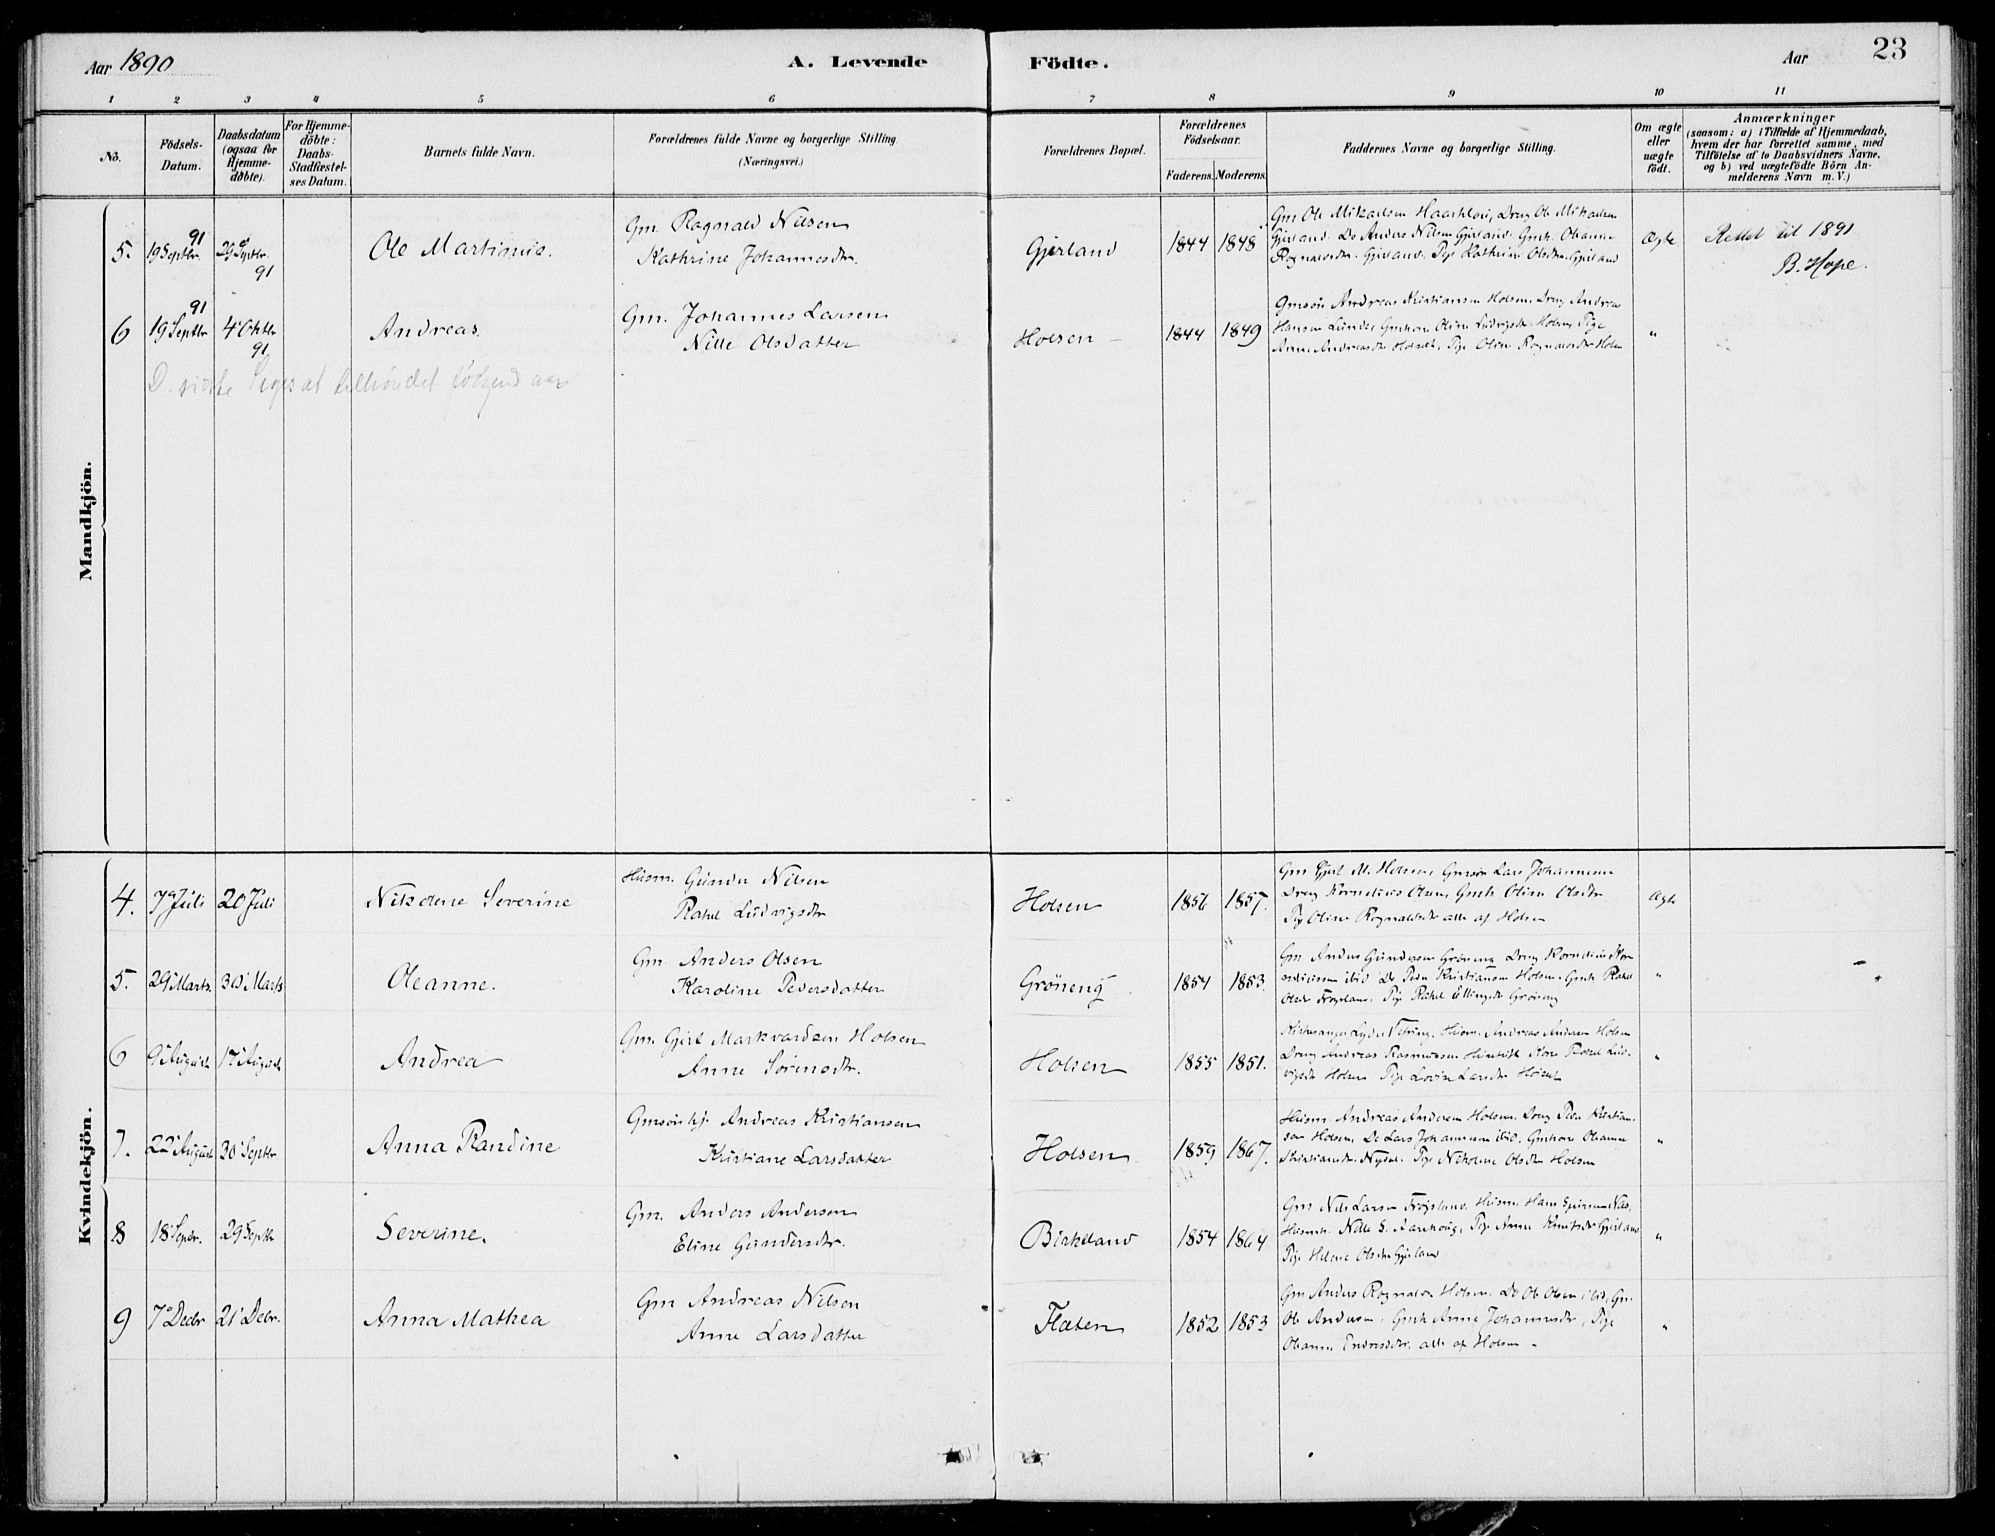 Aar 1890
A. Levende
Födte.
Aar
23
1 2 3 4 5 6 7 8 9 10 11
No.
Födsels-Datum.
Daabsdatum (ogsaa for Hjemme-döbte).
For Hjemme-döbte: Daabs-Stadfæstel-ses Datum.
Barnets fulde Navn.
Forældrenes fulde Navne og borgerlige Stilling. (Næringsvei.)
Forældrenes Bopæl.
Forældrenes Födselsaar.
Faderens. Moderens.
Faddernes Navne og borgerlige Stilling.
Om ægte eller uægte födt.
Anmærkninger
(saasom: a) i Tilfælde af Hjemmedaab, hvem der har forrettet samme, med Tilföielse af to Daabsvidners Navne, og b) ved uægtefödte Börn Anmelderens Navn m. V.)
Mandkjön.
5. 19 Septbr. 91 29 Septbr. 91 Ole Martinus. Gm. Ragnald Nilsen Kathrine Johannesdtr. Gjerland 1844 1848
Gm Ole Mikaelsen Haarklau, Dreng Ole Mikaelsen
Gjerland. Do Anders Nilsen Gjerland. Gmk. Oleanne
Rognaldsdtr. Gjerland, Pige Kathrine Olsdtr. Gjerland
Ægte Rettet til 1891
B. Hope.
6 19 Septbr 91 4 Oktbr 91 Andreas. Gm. Johannes Larsen Nille Olsdatter Holsen 1844 1849
Gmsön Andreas Kristiansen Holsen, Dreng Andreas
Hansen Lunde, Gmkone Oline Ludvigsdtr. Holsen, Pige
Anne Andreasdtr Holsen, Pige Oline Rognaldsdtr Holsen
"
følgend aar
Kvindekjön.
4. 7 Juli 20 Juli Nikoline Severine Husm. Gunder Nilsen Rakel Ludvigsdtr Holsen 1856 1857.
Gm Gjert M. Holsen, Gmsön Lars Johannesen
Dreng Kornelius Olsen, Gmk Oline Olsdtr
Pige Oline Rognaldsdtr alle af Holsen
Ægte
5. 29 Marts. 30 Marts Oleanne. Gm. Anders Olsen Karoline Pedersdatter Gröneng 1854 1853.
Gm Anders Gundersen Gröneng Dreng Kornelius
ibid Do Peder Kristiansen Holsen. Gmk Rakel
Olsdtr Frøysland. Pige Rakel Ellingsdtr Gröneng
"
6 9 August 17 August Andrea Gm. Gjert Markvardsen Holsen Anne Sörensdtr. Holsen 1855 1851.
Kirkesanger Husm. Andreas Andersen Holsen
Dreng Andreas Rasmussen Kone Rakel Lud-
vigsdtr Holsen Pige Lovise Larsdtr Holsen
"
7. 22 August 30 Septbr Anna Randine Gmsön Andreas Kristiansen Kristiane Larsdatter Holsen 1859 1867.
Husm. Andreas Andersen Holsen, Dreng Peder Kristian-
sen Holsen, Do Lars Johannesen ibid, Gmkone Oleanne
Kristiansdtr. Nydal. Pige Nikoline Olsdtr Holsen
"
8 18 Septr. 29 Septbr Severine. Gm. Anders Andersen Eline Gundersdtr. Birkeland 1854 1864
Gm Nils Larsen Frøysland. Husm. Hans
Husmk. Nille S. Aarhoug, Pige Anne Knutsdtr Gjerland
Pige Helene Olsdtr Gjerland
"
9 7 Decbr 21 Debr. Anna Mathea Gm Andreas Nilsen Anne Larsdatter Flaten 1852 1853
Gm Anders Rognaldsen Holsen. Do Ole Olsen ibid, Gm.
Ole Andersen. Gmk Anne Johannesdtr, Pige
Oleanne Endresdtr. alle af Holsen
"